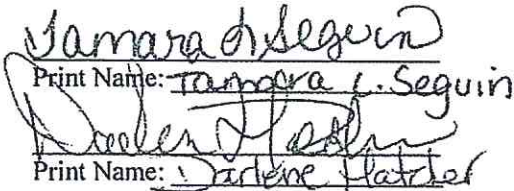 Tamara L Seguin
Print Name: Tamara L. Seguin
Darlene Hatcher
Print Name: Darlene Hatcher